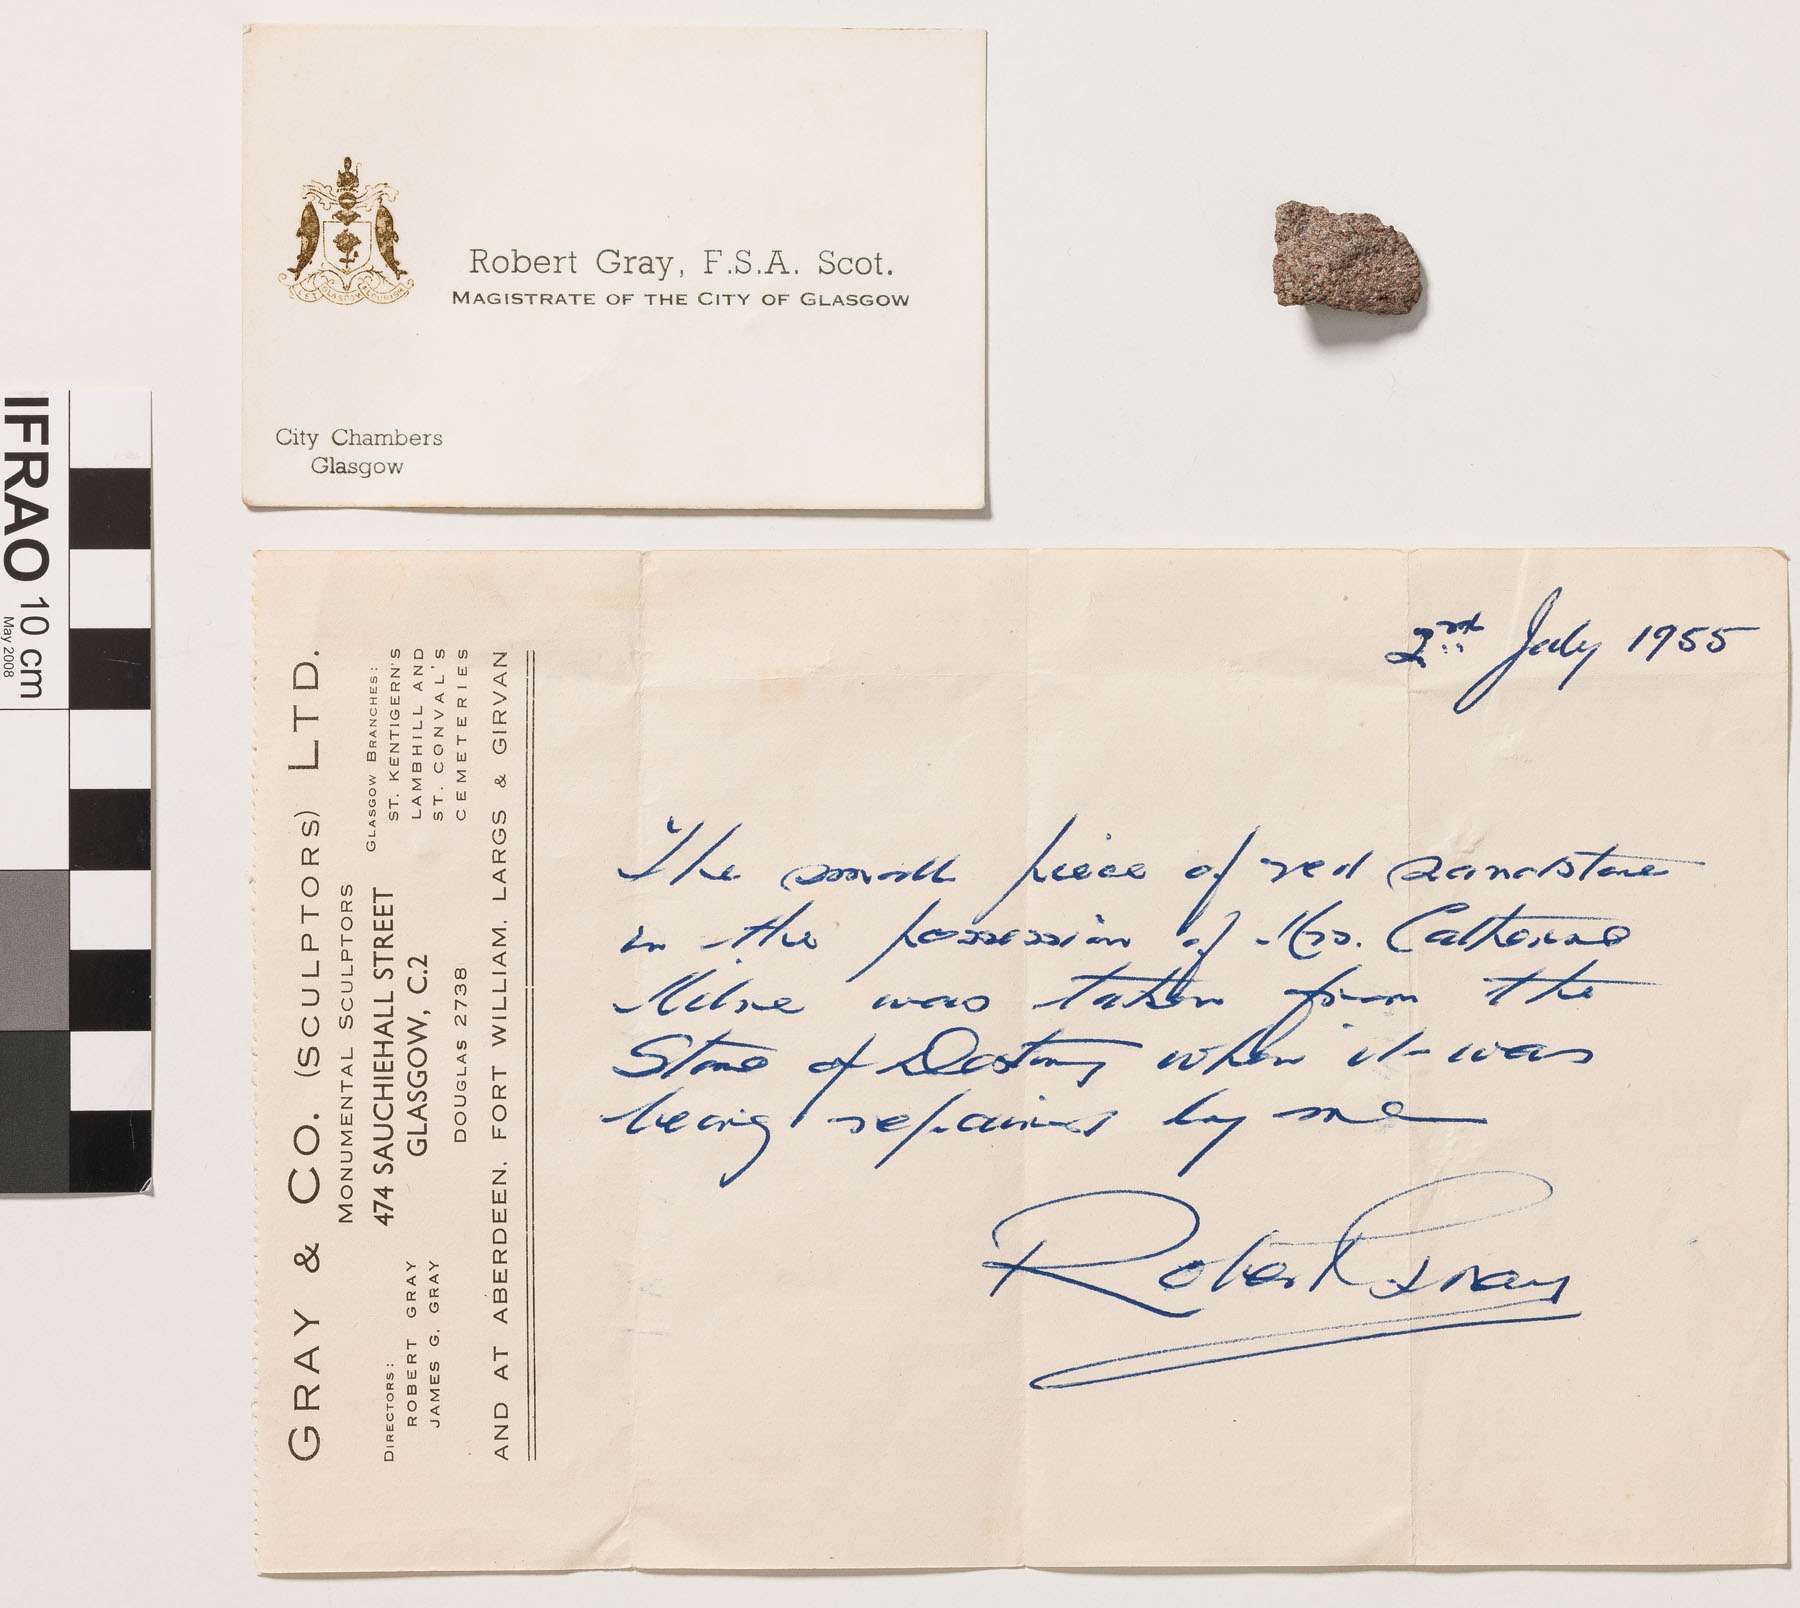 Robert Gray, F.S.A. Scot.
MAGISTRATE OF THE CITY OF GLASGOW
City Chambers
Glasgow
LET GLASGOW FLOURISH
IFRAO 10 cm
May 2008
GRAY & CO. (SCULPTORS) LTD.
MONUMENTAL SCULPTORS
474 SAUCHIEHALL STREET
GLASGOW, C.2
DOUGLAS 2738
DIRECTORS:
ROBERT GRAY
JAMES G. GRAY
GLASGOW BRANCHES:
ST. KENTIGERN'S
LAMBHILL AND
ST. CONVAL'S
CEMETERIES
AND AT ABERDEEN, FORT WILLIAM, LARGS & GIRVAN
2nd July 1955
The small piece of red sandstone
in the possession of Mrs. Catherine
Milne was taken from the
Stone of Destiny when it was
being repaired by me
Robert Gray